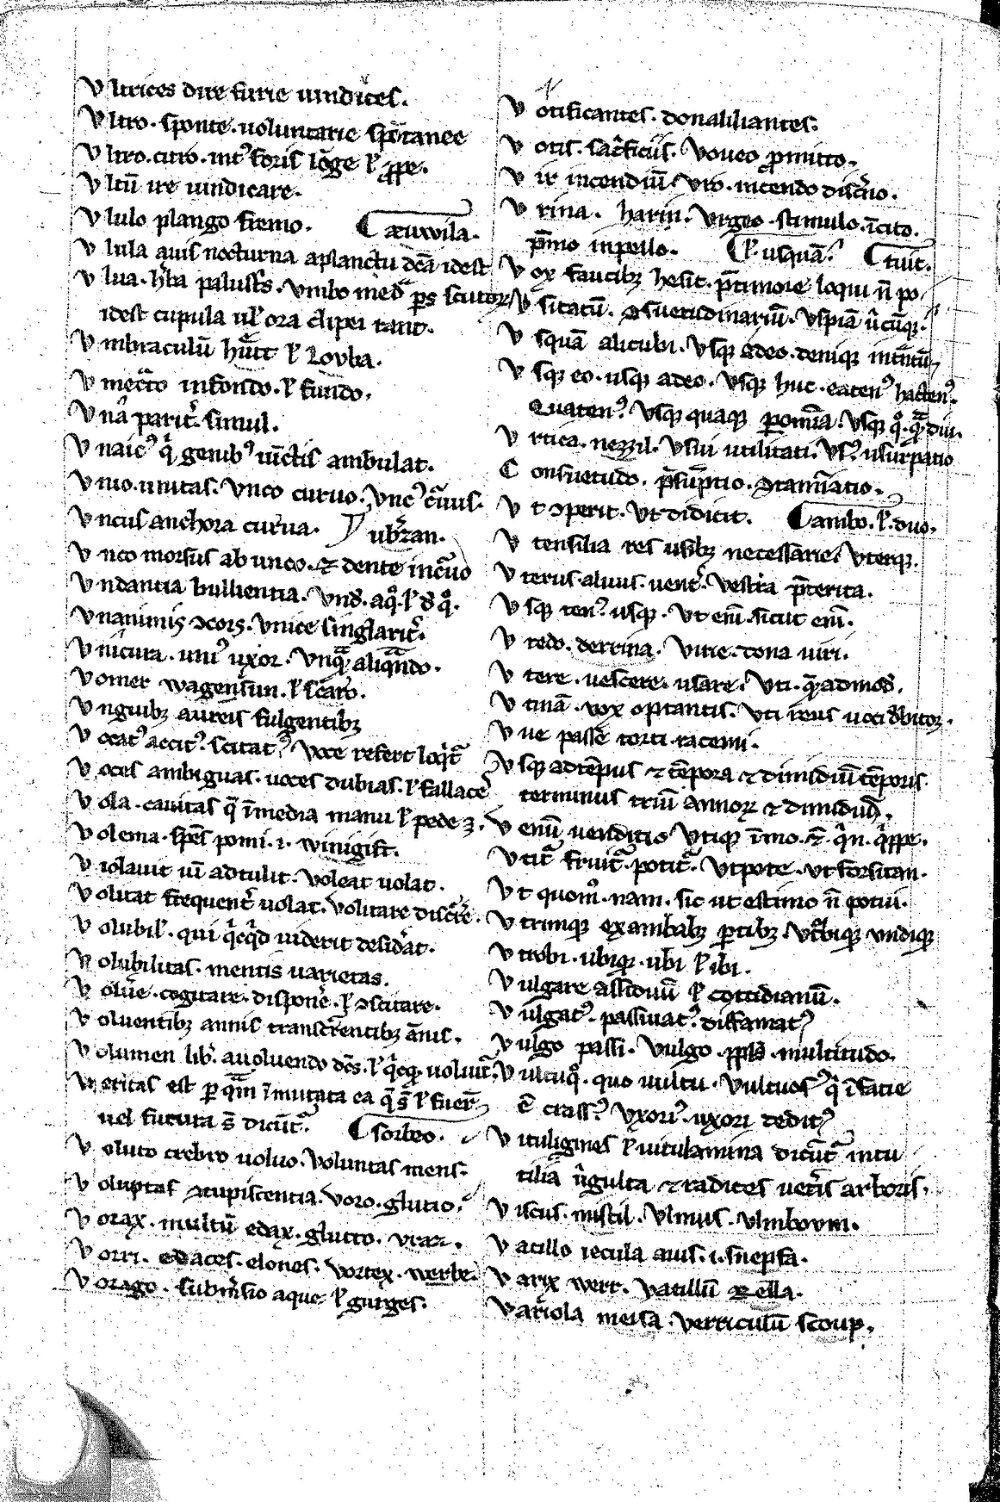 Vltrices dire furie uindices.
Vltro. sponte. uoluntarie spōtanee
Vltro. citro. int᷒ foris lōge ł ꝓpe.
Vltū ire uindicare.
Vlulo plango fremo. ¶ æuwila.
Vlula auis nocturna aplanctu dc̄a idest
Vlua. h̓ba palustͥs. Vmbo med̓ ꝑs scutoꝝ
idest cupula ul̓ ora clipei tant.
Vmbraculū hutt ł Louba.
Vmecto infondo. ł fundo.
Vna parit̓. simul.
Vnaic᷒ qͥ genib᷒ iūctis ambulat.
Vnio. unitas. Vnco curuo. Vnc᷒ c̄uus.
Vncus anchora curua. ubͥzan.
Vnco morsus ab unco. ⁊ dente incͥuo
Vndantia bullientia. Vnd̓. aqͦ. ł d̓ qͦ.
Vnanimis ↄcors. Vnice singlarit̓.
Vnicura. uni᷒ uxor. Vnqͣ̄ aliqn̄do.
Vomer wagensun. ł scaro.
Vnguibꝫ aureis fulgentibꝫ
Vocat᷒ accit᷒. scitat᷒. Voce refert loqͥt̄
Voces ambiguas. uoces dubias. ł fallaces
Vola. cauitas q̄ ī media manu ł pede ꝫ.
Volema. spe͞s pomi. i. winigift.
Violauit uī adtulit. Voleat uolat.
Volitat frequent̓ uolat. Volitare disc̓re.
Volubil̓. qui qͥcqͥd uiderit desid̓at.
Volubilitas. mentis uarietas.
Volūe. cogitare. dispon̓e. ł ↄscitare.
Voluentibꝫ annis transc̓entibꝫ ānis.
Volumen lib̓. auoluendo dc̄s. ł qͥcqͥ uoluit̄.
Veritas est ꝑ qͣm īmutata ea q̄ s̄ ł fuer̄
uel futura s̄ dicūt̄. ¶ sorbeo.
Voluto crebro uoluo. Voluntas mens.
Voluptas ↄcupiscentia. Voro. glutio.
Vorax. multū edax. glutto. uraz.
Vorri. edaces. elones. Vortex. werbe.
Vorago. subm̓sio aque ł gurges.
Votificantes. donaliliantes.
Votis. sac̓ficiis. Voueo ꝓmitto.
Vir incendiū. Vro. incendo disc̓no.
Vrina. harin. Vrgeo. stimulo. īcito.
p̄mo inpello. ¶ ł. usquā. ¶ tuit.
Vox faucibꝫ hesit. p̄ timore loqui n̄ po
Vsitatū. ↄsuetudinariū. Vspiā ūcūqꝫ.
Vsquā alicubi. Vsqꝫ adeo. deniqꝫ intātū
Vsqꝫ eo. usqꝫ adeo. Vsqꝫ huc. eaten᷒ hacten᷒.
Quaten᷒. Vsqꝫ quaqꝫ ꝑ omīa. Vsqꝫ qͦ. qͣ diu.
Vrtica. nezzil. Vsui utilitati. Vs᷒. usurpatio
Consuetudo. p̄sūptio. Gramatio.
Vt ↄperit. Vt didicit. ¶ ambo. ł. duo.
Vtensilia res usibꝫ necessarie. Vterqꝫ.
Vterus. aluus. uent̓. Vestra p̄terita.
Vsqꝫ ten᷒. usqꝫ. Vt em̄. sicut em̄.
Vredo. derrina. Virie. dona uiri.
Vtere. uescere. usare. Vti. qͣadmod̓.
Vtinā. uox optantis. Vti reus uoti d̓bitoꝝ.
Vue passe torti racemi.
Vsqꝫ ad tēpus ⁊ tēpora ⁊ dimidiū tēporis.
terminus triū annoꝝ ⁊ dimidii.
Venū uenditio. Vtiqꝫ īmo. qͥn. qͥppe.
Vtit̄ fruit̄. potit̄. Vtpote. ut forsitan.
Vt quomͦ. nam. sic ut estimo n̄ potui.
Vtrimqꝫ ex ambabꝫ ꝑtibꝫ. Vt͛biqꝫ undiqꝫ
Vtrobi. ubiqꝫ. ubi ł ibi.
Vulgare assiduū ł cottidianū.
Vulgat᷒. passiuat᷒. diffamat᷒
Vulgo passi. Vulgo. ppl̓s. multitudo.
Vultuqͦ. quo uultu. Vultuos᷒ qͥ ī facie
ē crass᷒. Vxori᷒. uxori dedit᷒
Vituligines ł uitulamina dicūt̄ inuti
tiliā uͥgulta ⁊ radices uet̓is arboris.
Viscus. mistil. Vlmus. Vlmbovm.
Vacillo iecula auis. i. snepfa.
Varix wert. Vatillū ⁊ ella.
Variola meisa. Verriculū scoup.